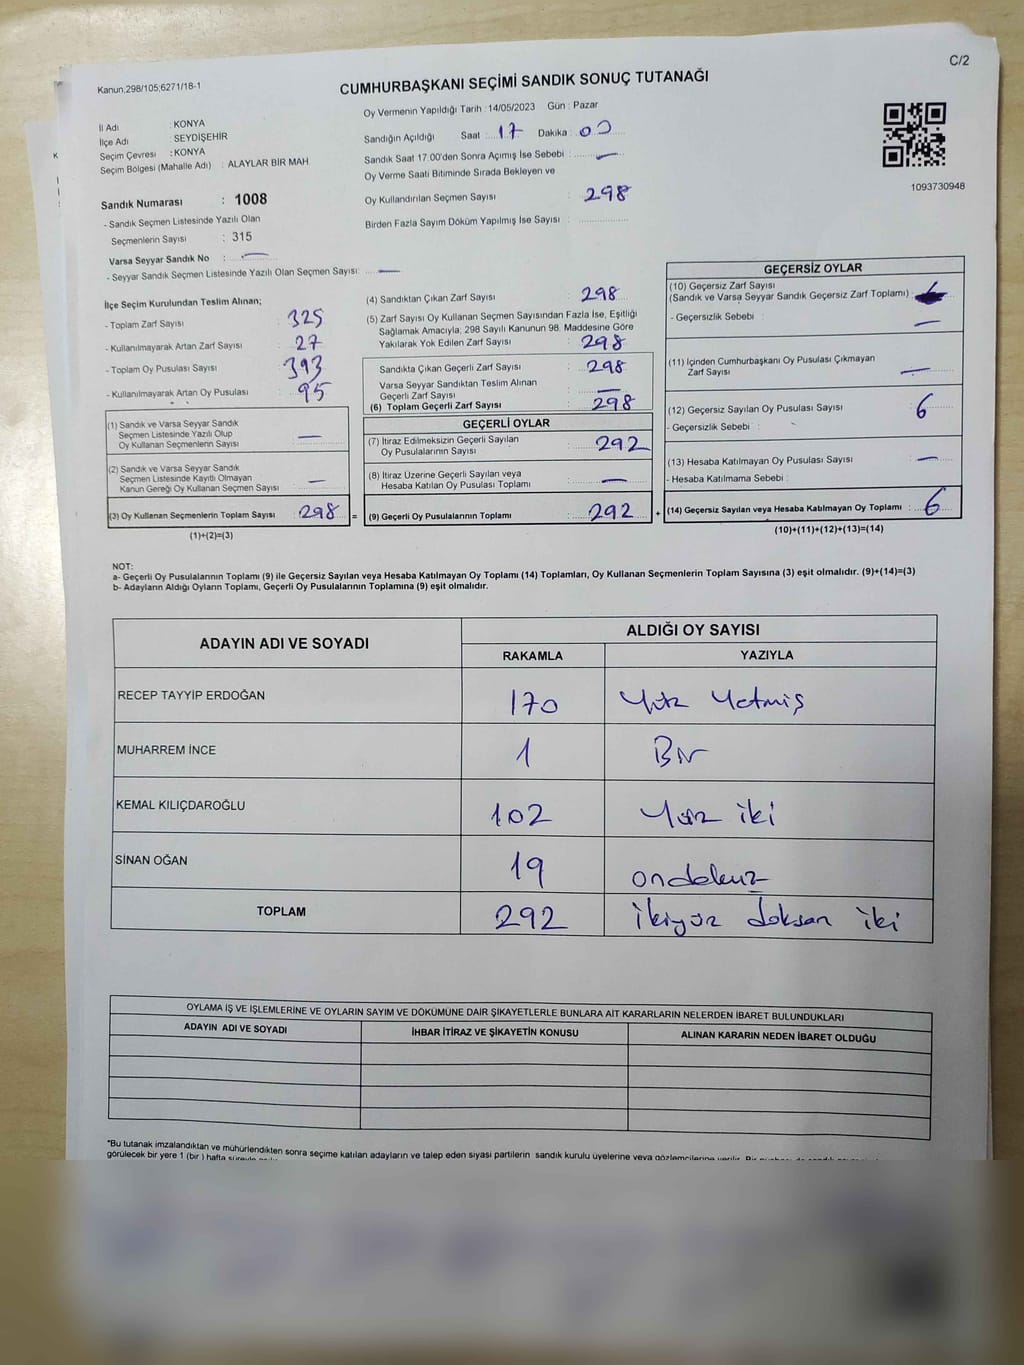 C/2
Kanun;298/105;6271/18-1
CUMHURBAŞKANI SEÇİMİ SANDIK SONUÇ TUTANAĞI
Oy Vermenin Yapıldığı Tarih :14/05/2023 Gün : Pazar
İl Adı : KONYA
İlçe Adı : SEYDİŞEHİR
Seçim Çevresi : KONYA
Seçim Bölgesi (Mahalle Adı) : ALAYLAR BİR MAH
Sandığın Açıldığı Saat : 17 Dakika : 00
Sandık Saat 17:00'den Sonra Açımış İse Sebebi : —
Oy Verme Saati Bitiminde Sırada Bekleyen ve
Oy Kullandırılan Seçmen Sayısı : 298
Birden Fazla Sayım Döküm Yapılmış İse Sayısı :
1093730948
Sandık Numarası : 1008
- Sandık Seçmen Listesinde Yazılı Olan
Seçmenlerin Sayısı : 315
Varsa Seyyar Sandık No : —
- Seyyar Sandık Seçmen Listesinde Yazılı Olan Seçmen Sayısı: —
İlçe Seçim Kurulundan Teslim Alınan;
- Toplam Zarf Sayısı : 325
- Kullanılmayarak Artan Zarf Sayısı : 27
- Toplam Oy Pusulası Sayısı : 393
- Kullanılmayarak Artan Oy Pusulası : 95
(1) Sandık ve Varsa Seyyar Sandık
Seçmen Listesinde Yazılı Olup
Oy Kullanan Seçmenlerin Sayısı : —
(2) Sandık ve Varsa Seyyar Sandık
Seçmen Listesinde Kayıtlı Olmayan
Kanun Gereği Oy Kullanan Seçmen Sayısı : —
(3) Oy Kullanan Seçmenlerin Toplam Sayısı : 298 =
(1)+(2)=(3)
(4) Sandıktan Çıkan Zarf Sayısı : 298
(5) Zarf Sayısı Oy Kullanan Seçmen Sayısından Fazla İse, Eşitliği
Sağlamak Amacıyla; 298 Sayılı Kanunun 98. Maddesine Göre
Yakılarak Yok Edilen Zarf Sayısı : 298
Sandıkta Çıkan Geçerli Zarf Sayısı : 298
Varsa Seyyar Sandıktan Teslim Alınan
Geçerli Zarf Sayısı : —
(6) Toplam Geçerli Zarf Sayısı : 298
GEÇERLİ OYLAR
(7) İtiraz Edilmeksizin Geçerli Sayılan
Oy Pusulalarının Sayısı : 292
(8) İtiraz Üzerine Geçerli Sayılan veya
Hesaba Katılan Oy Pusulası Toplamı : —
(9) Geçerli Oy Pusulalarının Toplamı : 292 +
GEÇERSİZ OYLAR
(10) Geçersiz Zarf Sayısı
(Sandık ve Varsa Seyyar Sandık Geçersiz Zarf Toplamı) :
- Geçersizlik Sebebi : —
(11) İçinden Cumhurbaşkanı Oy Pusulası Çıkmayan
Zarf Sayısı : —
(12) Geçersiz Sayılan Oy Pusulası Sayısı : 6
- Geçersizlik Sebebi :
(13) Hesaba Katılmayan Oy Pusulası Sayısı : —
- Hesaba Katılmama Sebebi :
(14) Geçersiz Sayılan veya Hesaba Katılmayan Oy Toplamı : 6
(10)+(11)+(12)+(13)=(14)
NOT:
a- Geçerli Oy Pusulalarının Toplamı (9) ile Geçersiz Sayılan veya Hesaba Katılmayan Oy Toplamı (14) Toplamları, Oy Kullanan Seçmenlerin Toplam Sayısına (3) eşit olmalıdır. (9)+(14)=(3)
b- Adayların Aldığı Oyların Toplamı, Geçerli Oy Pusulalarının Toplamına (9) eşit olmalıdır.
ADAYIN ADI VE SOYADI
ALDIĞI OY SAYISI
RAKAMLA YAZIYLA
RECEP TAYYİP ERDOĞAN 170 Yüz Yetmiş
MUHARREM İNCE 1 Bir
KEMAL KILIÇDAROĞLU 102 Yüz iki
SİNAN OĞAN 19 ondokuz
TOPLAM 292 ikiyüz doksan iki
OYLAMA İŞ VE İŞLEMLERİNE VE OYLARIN SAYIM VE DÖKÜMÜNE DAİR ŞİKAYETLERLE BUNLARA AİT KARARLARIN NELERDEN İBARET BULUNDUKLARI
ADAYIN ADI VE SOYADI İHBAR İTİRAZ VE ŞİKAYETİN KONUSU ALINAN KARARIN NEDEN İBARET OLDUĞU
*Bu tutanak imzalandıktan ve mühürlendikten sonra seçime katılan adayların ve talep eden siyasi partilerin sandık kurulu üyelerine veya gözlemcilerine verilir. Bir
görülecek bir yere 1 (bir ) hafta